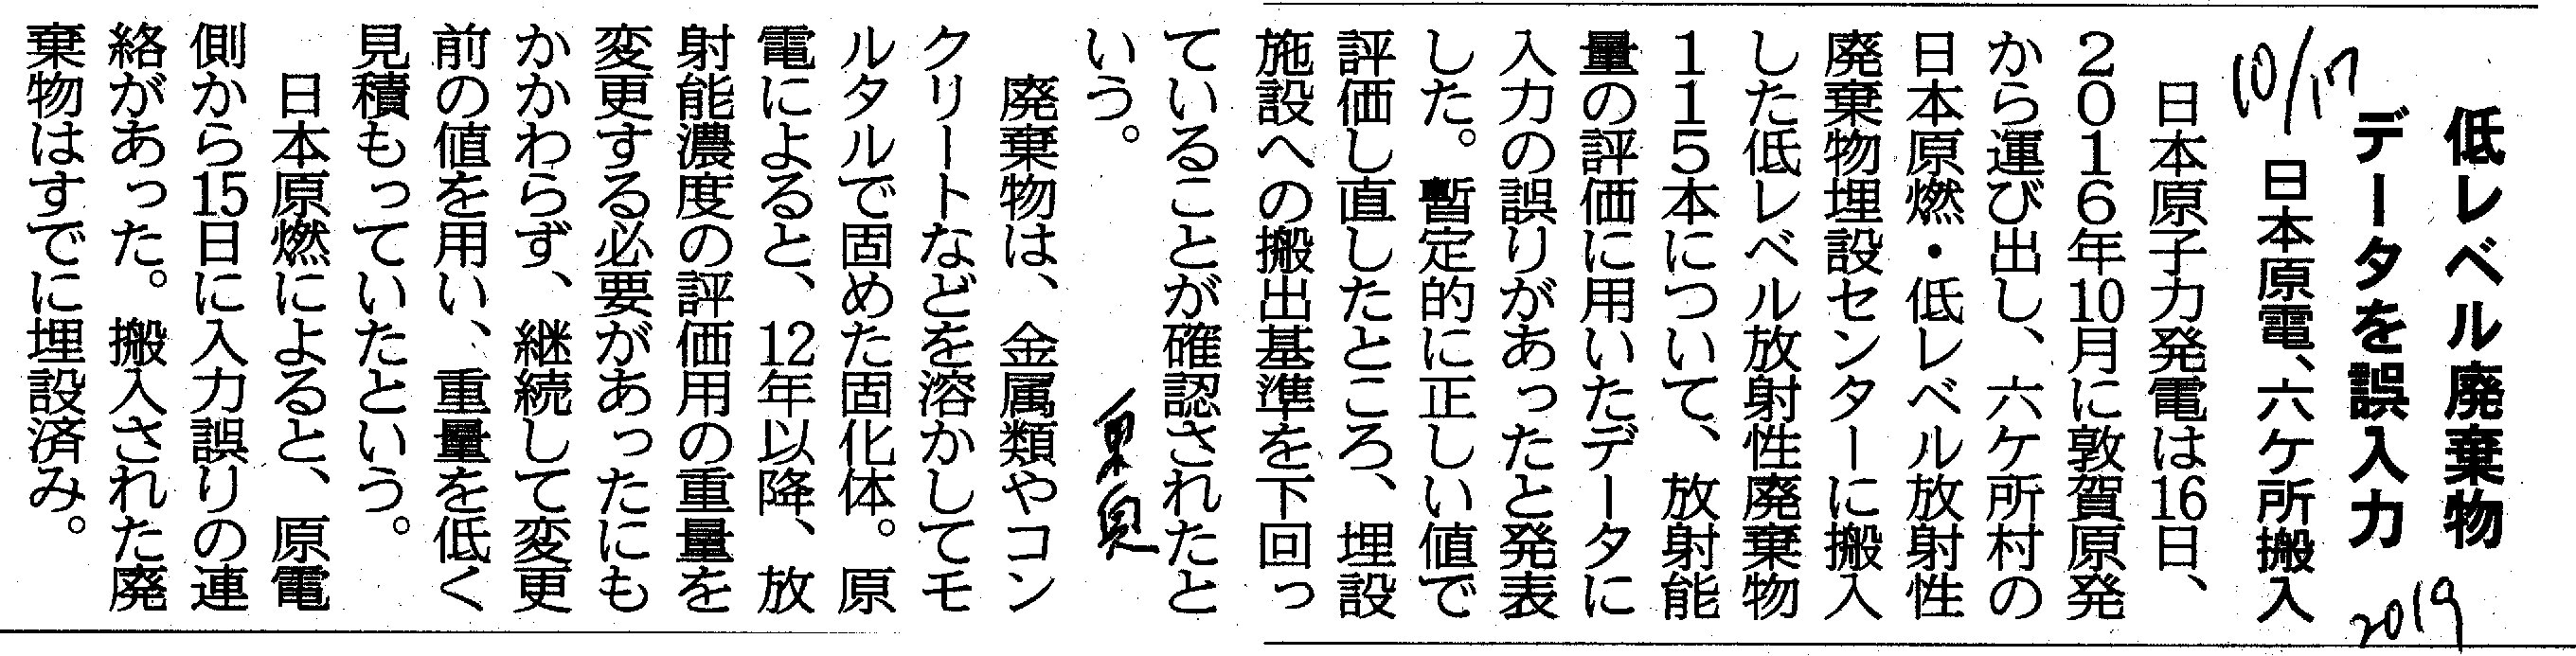 低レベル廃棄物
データを誤入力
2019
10/17
日本原電、六ケ所搬入
日本原子力発電は16日、
2016年10月に敦賀原発
から運び出し、六ケ所村の
日本原燃・低レベル放射性
廃棄物埋設センターに搬入
した低レベル放射性廃棄物
115本について、放射能
量の評価に用いたデータに
入力の誤りがあったと発表
した。暫定的に正しい値で
評価し直したところ、埋設
施設への搬出基準を下回っ
ていることが確認されたと
いう。
東奥
廃棄物は、金属類やコン
クリートなどを溶かしてモ
ルタルで固めた固化体。原
電によると、12年以降、放
射能濃度の評価用の重量を
変更する必要があったにも
かかわらず、継続して変更
前の値を用い、重量を低く
見積もっていたという。
日本原燃によると、原電
側から15日に入力誤りの連
絡があった。搬入された廃
棄物はすでに埋設済み。